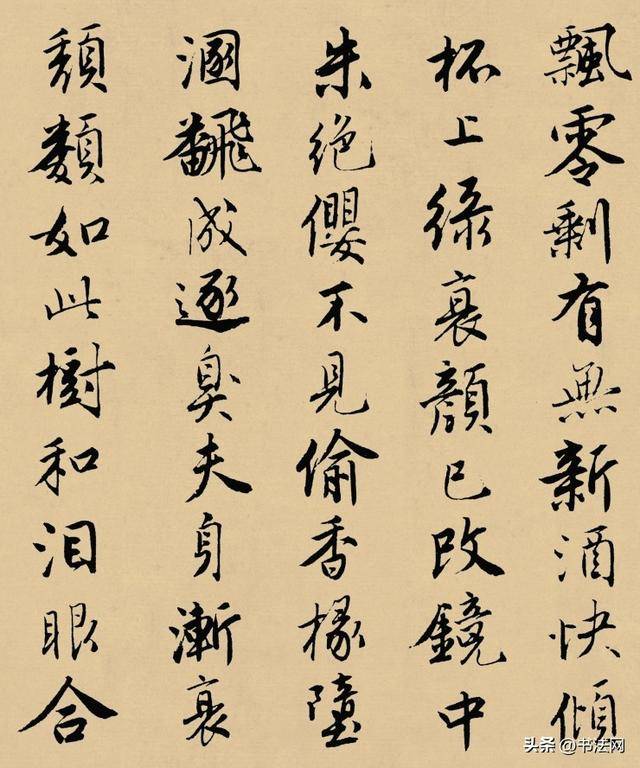 飄零剩有無新酒快傾
杯上綠衰顔已改鏡中
朱絕纓不見偷香椽墮
溷飜成逐臭夫身漸衰
頽類如此樹和泪眼合
头条 @书法网